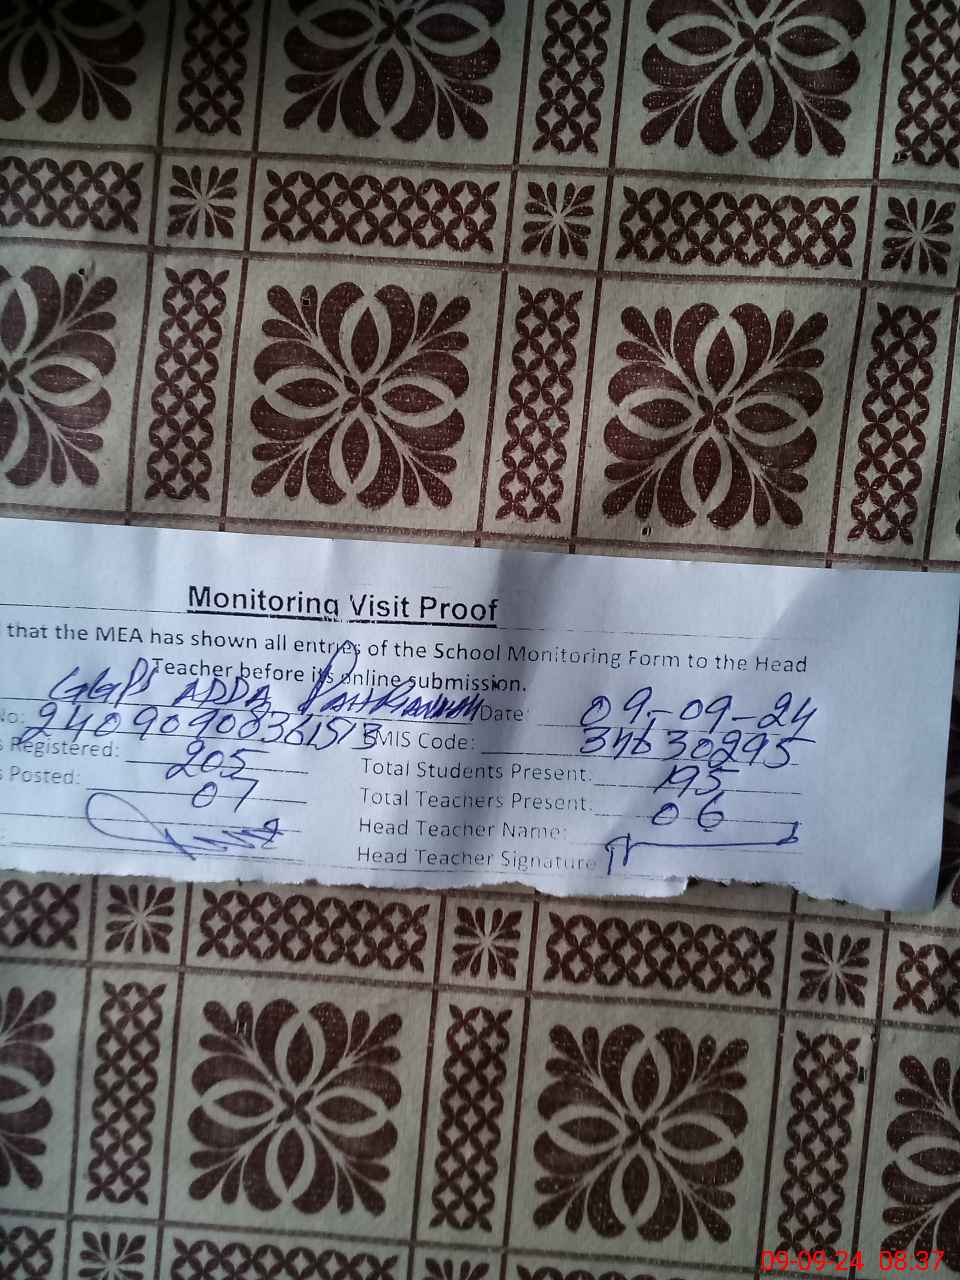 Monitoring Visit Proof
that the MEA has shown all entries of the School Monitoring Form to the Head
Teacher before its online submission.
GGPS ADDA Date: 09-09-24
No: 2409090836151573 EMIS Code: 34630295
s Registered: 205 Total Students Present: 195
s Posted: 07 Total Teachers Present: 06
Head Teacher Name:
Head Teacher Signature
09-09-24 08.37